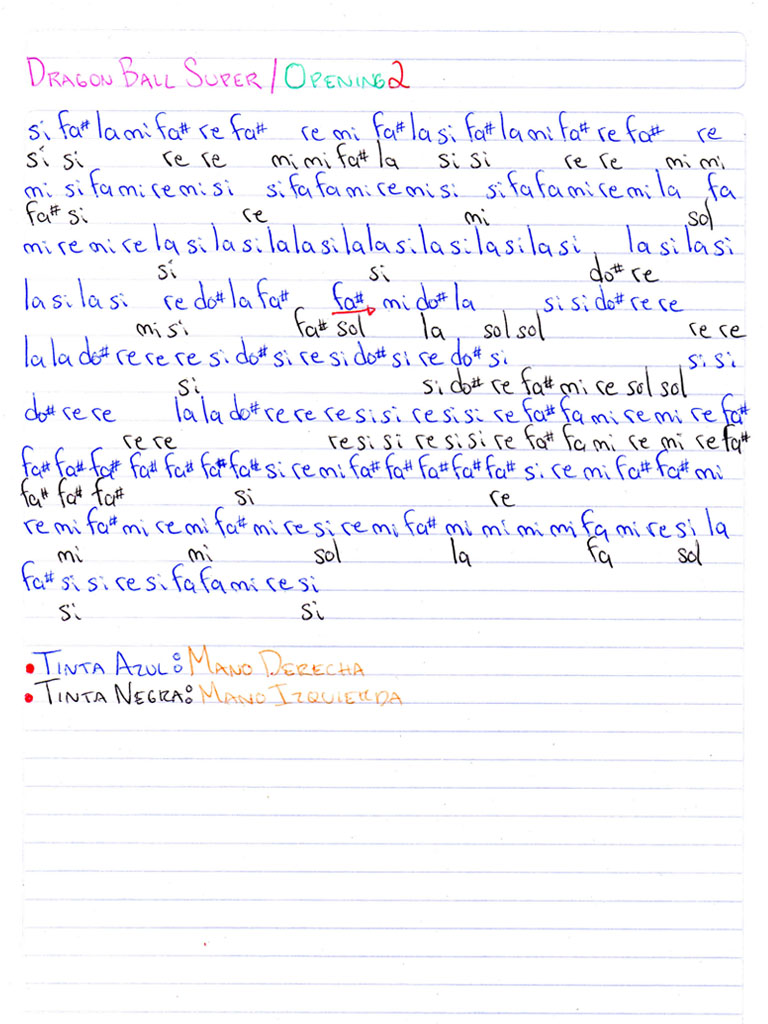 DRAGON BALL SUPER / OPENING 2
si fa# la mi fa# re fa# re mi fa# la si fa# la mi fa# re fa# re
si si re re mi mi fa# la si si re re mi mi
mi si fa mi re mi si si fa fa mi re mi si si fa fa mi re mi la fa
fa# si re mi sol
mi re mi re la si la si la la si la la si la si la si la si la si la si
si si do# re
la si la si re do# la fa# fa# mi do# la si si do# re re
mi si fa# sol la sol sol re re
la la do# re re re si do# si re si do# si re do# si si si
si si do# re fa# mi re sol sol
do# re re la la do# re re re si si re si si re fa# fa mi re mi re fa#
re re re si si re si si re fa# fa mi re mi re fa#
fa# fa# fa# fa# fa# fa# fa# si re mi fa# fa# fa# fa# fa# si re mi fa# fa# mi
fa# fa# fa# si re
re mi fa# mi re mi fa# mi re si re mi fa# mi mi mi mi fa mi re si la
mi mi sol la fa sol
fa# si si re si fa fa mi re si
si si
• TINTA AZUL: MANO DERECHA
• TINTA NEGRA: MANO IZQUIERDA